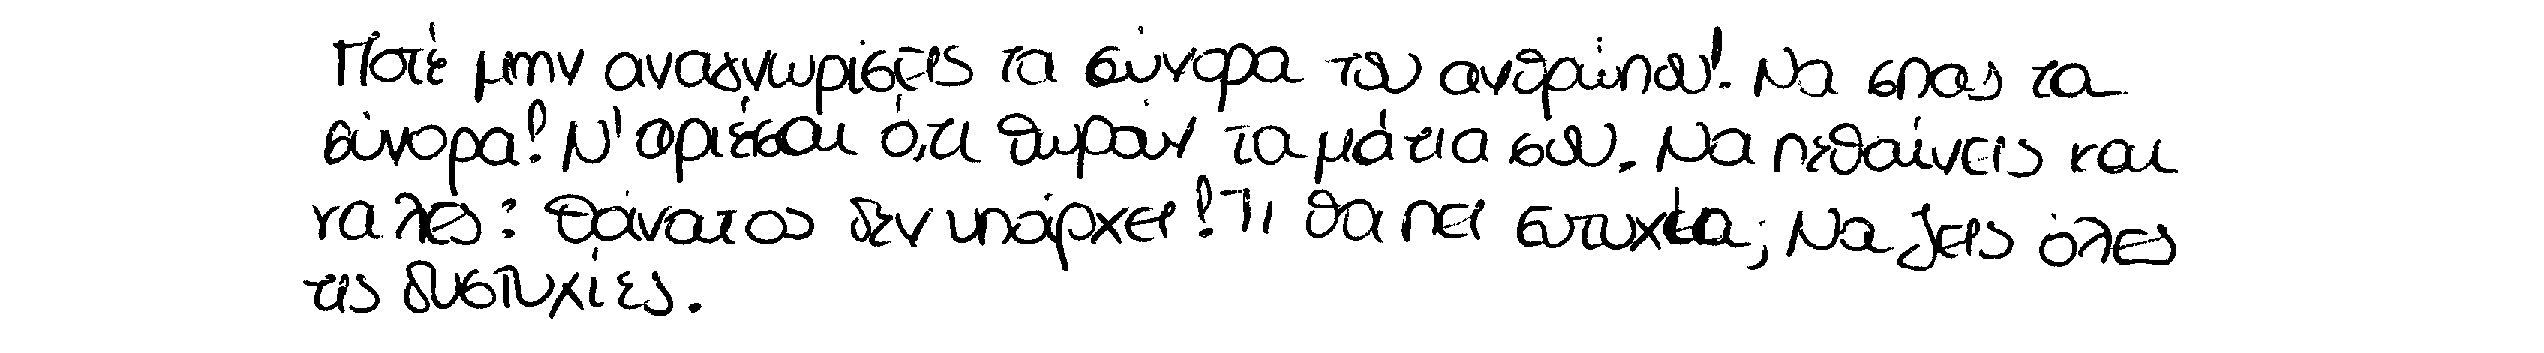 Ποτέ μην αναγνωρίσεις τα σύνορα του ανθρώπου! Να σπας τα
σύνορα! Ν' αρνιέσαι ό,τι θωρούν τα μάτια σου. Να πεθαίνεις και
να λες: Θάνατος δεν υπάρχει! Τι θα πει ευτυχία; Να ζεις όλες
τις δυστυχίες.